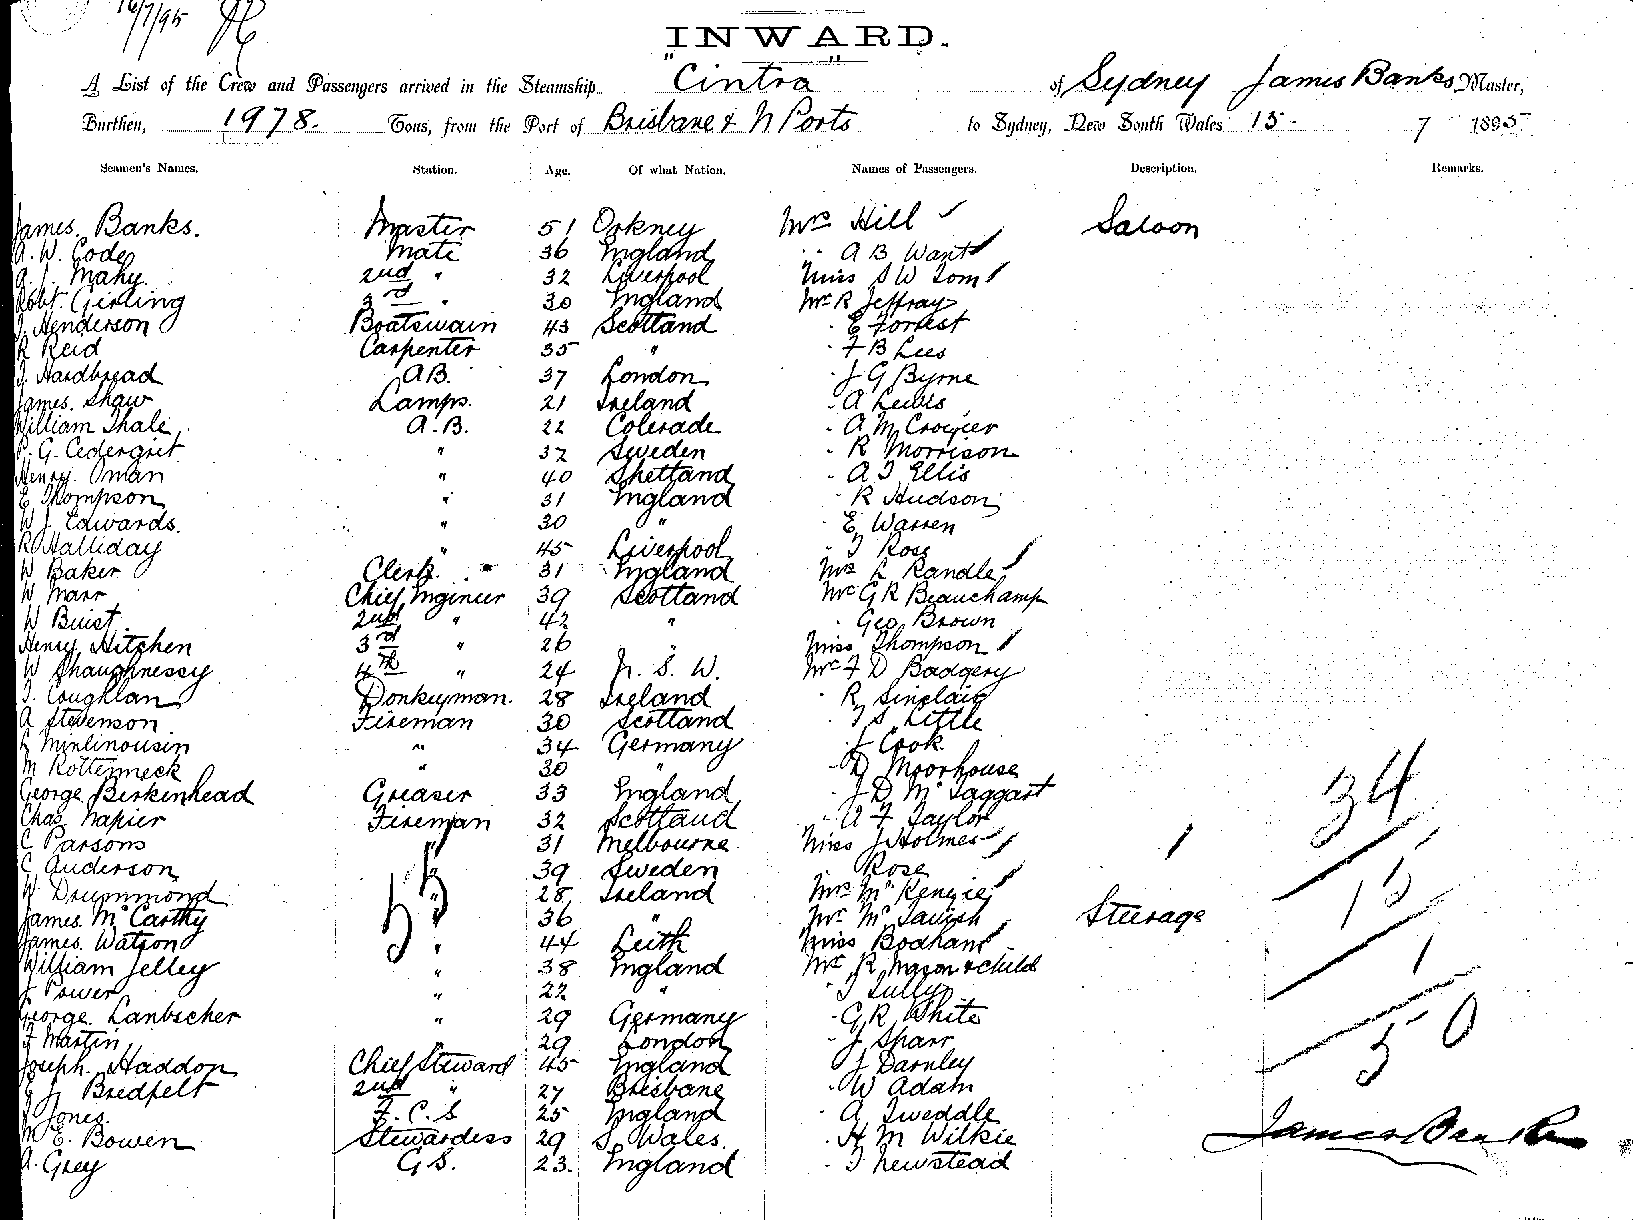 16/7/95
INWARD.
A List of the Crew and Passengers arrived in the Steamship "Cintra" of Sydney James Banks Master,
Burthen, 1978. Tons, from the Port of Brisbane & N Ports to Sydney, New South Wales 15. 7 1895
Seamen's Names. Station. Age. Of what Nation. Names of Passengers. Description. Remarks.
James. Banks. Master 51 Orkney Mrs Hill Saloon
A. W. Code Mate 36 England " A B Want
A. J. Mahy. 2nd " 32 Liverpool Miss S W Tom
Robt. Girling 3rd " 30 England Mr R Jeffray
J. Henderson Boatswain 43 Scotland " E Forrest
R Reid Carpenter 35 " " F B Lees
J. Hardbread A.B. 37 London " J G Byrne
James. Shaw Lamps. 21 Ireland " A Lewis
William Thale A.B. 22 Colerade " A M Crozier
P. G. Cedergrit " 32 Sweden " R Morrison
Henry. Oman " 40 Shetland " A T Ellis
E Thompson " 31 England " R Hudson
W J. Edwards. " 30 " " E Warren
R Halliday " 45 Liverpool " T Rose
W Baker Clerk. 31 England Mrs L Randle
W Marr Chief Engineer 39 Scotland Mr G R Beauchamp
W Buist 2nd " 42 " " Geo Brown
Henry Hitchen 3rd 26 " Miss Thompson
W Shaughnessy 4th " 24 N. S. W. Mr F D Badgery
T. Coughlan Donkeyman. 28 Ireland " R Sinclair
A Stevenson Fireman 30 Scotland " T S Little
Minlinousin " 34 Germany " J Cook
M Rottenneck " 30 " " D Moorhouse
George Birkenhead Greaser 33 England " J D McTaggart 34
Chas Napier Fireman 32 Scotland " A F Taylor
C Parsons " 31 Melbourne Miss J Holmes
C Anderson " 39 Sweden " Rose
W Drummond " 28 Ireland Mrs McKenzie 15
James. McCarthy 55 " 36 " Mr McTavish Steerage
James. Watson " 44 Leith Miss Bodhan
William Jelley " 38 England Mr R Mason & child 1
J Power " 22 " " T Tully
George. Lanbscher " 29 Germany " G R White
F Martin 29 London " J Sharr 50
Joseph. Haddon Chief Steward 45 England " J Darnley
J. Bredfelt 2nd " 27 Brisbane " W Adam
J Jones. F. C. S 25 England " A Tweddle
M E. Bowen Stewardess 29 S. Wales. " H M Wilkie James Banks
A. Grey G S. 23. England " T Newstead